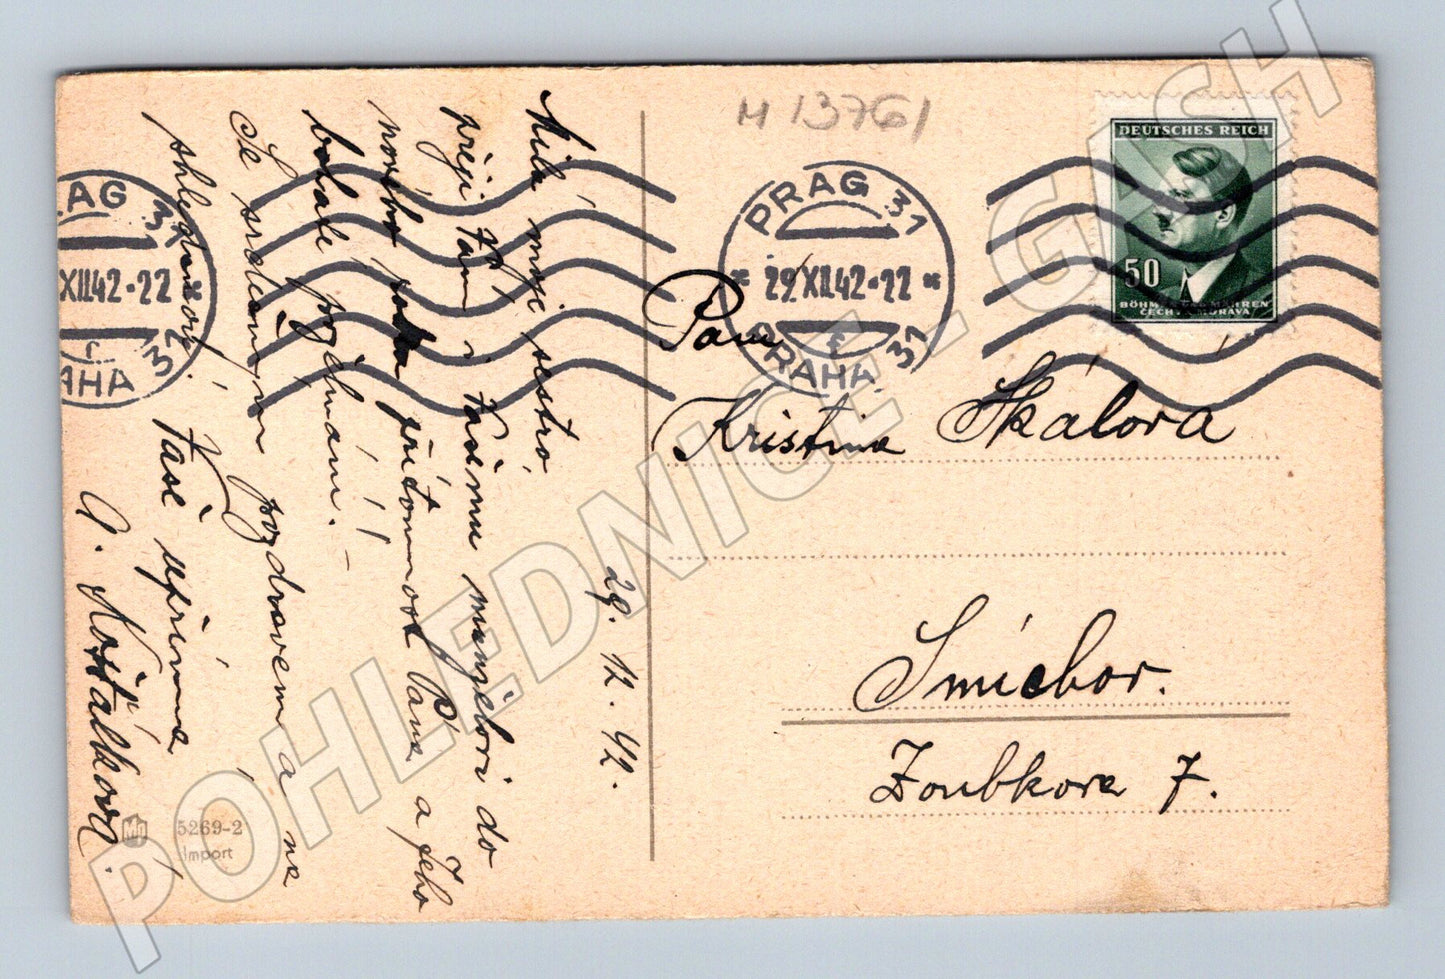 M 13761
DEUTSCHES REICH
50
BÖHMEN UND MÄHREN
ČECHY A MORAVA
PRAG 31
29.XII.42-22
PRAHA 31
RAG 31
XII.42-22
AHA 31
Milá moje sestro
přeji Vám i Vašemu manželovi do
nového roku přítomnost Pána a Jeho
bohaté požehnání! –
Se srdečným pozdravem a na
shledanou! Vaše upřímná
A. Košťálková.
29. 12. 42.
Paní
Kristina Skálová
Smíchov.
Zoubkova 7.
5269-2
Import
POHLEDNICE - GASH